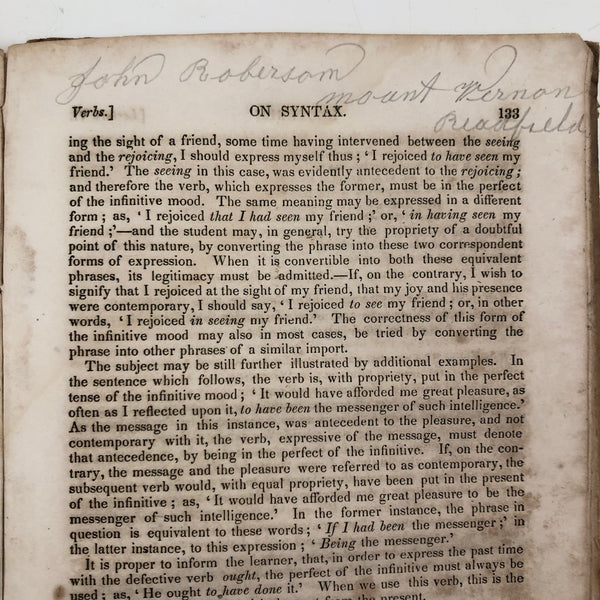 John Roberson
mount Vernon
Readfield
Verbs.] ON SYNTAX. 133
ing the sight of a friend, some time having intervened between the seeing
and the rejoicing, I should express myself thus; ‘I rejoiced to have seen my
friend.’ The seeing in this case, was evidently antecedent to the rejoicing;
and therefore the verb, which expresses the former, must be in the perfect
of the infinitive mood. The same meaning may be expressed in a different
form; as, ‘I rejoiced that I had seen my friend;’ or, ‘in having seen my
friend;’—and the student may, in general, try the propriety of a doubtful
point of this nature, by converting the phrase into these two correspondent
forms of expression. When it is convertible into both these equivalent
phrases, its legitimacy must be admitted.—If, on the contrary, I wish to
signify that I rejoiced at the sight of my friend, that my joy and his presence
were contemporary, I should say, ‘I rejoiced to see my friend; or, in other
words, ‘I rejoiced in seeing my friend.’ The correctness of this form of
the infinitive mood may also in most cases, be tried by converting the
phrase into other phrases of a similar import.
The subject may be still further illustrated by additional examples. In
the sentence which follows, the verb is, with propriety, put in the perfect
tense of the infinitive mood; ‘It would have afforded me great pleasure, as
often as I reflected upon it, to have been the messenger of such intelligence.’
As the message in this instance, was antecedent to the pleasure, and not
contemporary with it, the verb, expressive of the message, must denote
that antecedence, by being in the perfect of the infinitive. If, on the con-
trary, the message and the pleasure were referred to as contemporary, the
subsequent verb would, with equal propriety, have been put in the present
of the infinitive; as, ‘It would have afforded me great pleasure to be the
messenger of such intelligence.’ In the former instance, the phrase in
question is equivalent to these words; ‘If I had been the messenger;’ in
the latter instance, to this expression; ‘Being the messenger.’
It is proper to inform the learner, that, in order to express the past time
with the defective verb ought, the perfect of the infinitive must always be
used; as, ‘He ought to have done it.’ When we use this verb, this is the
from the present.